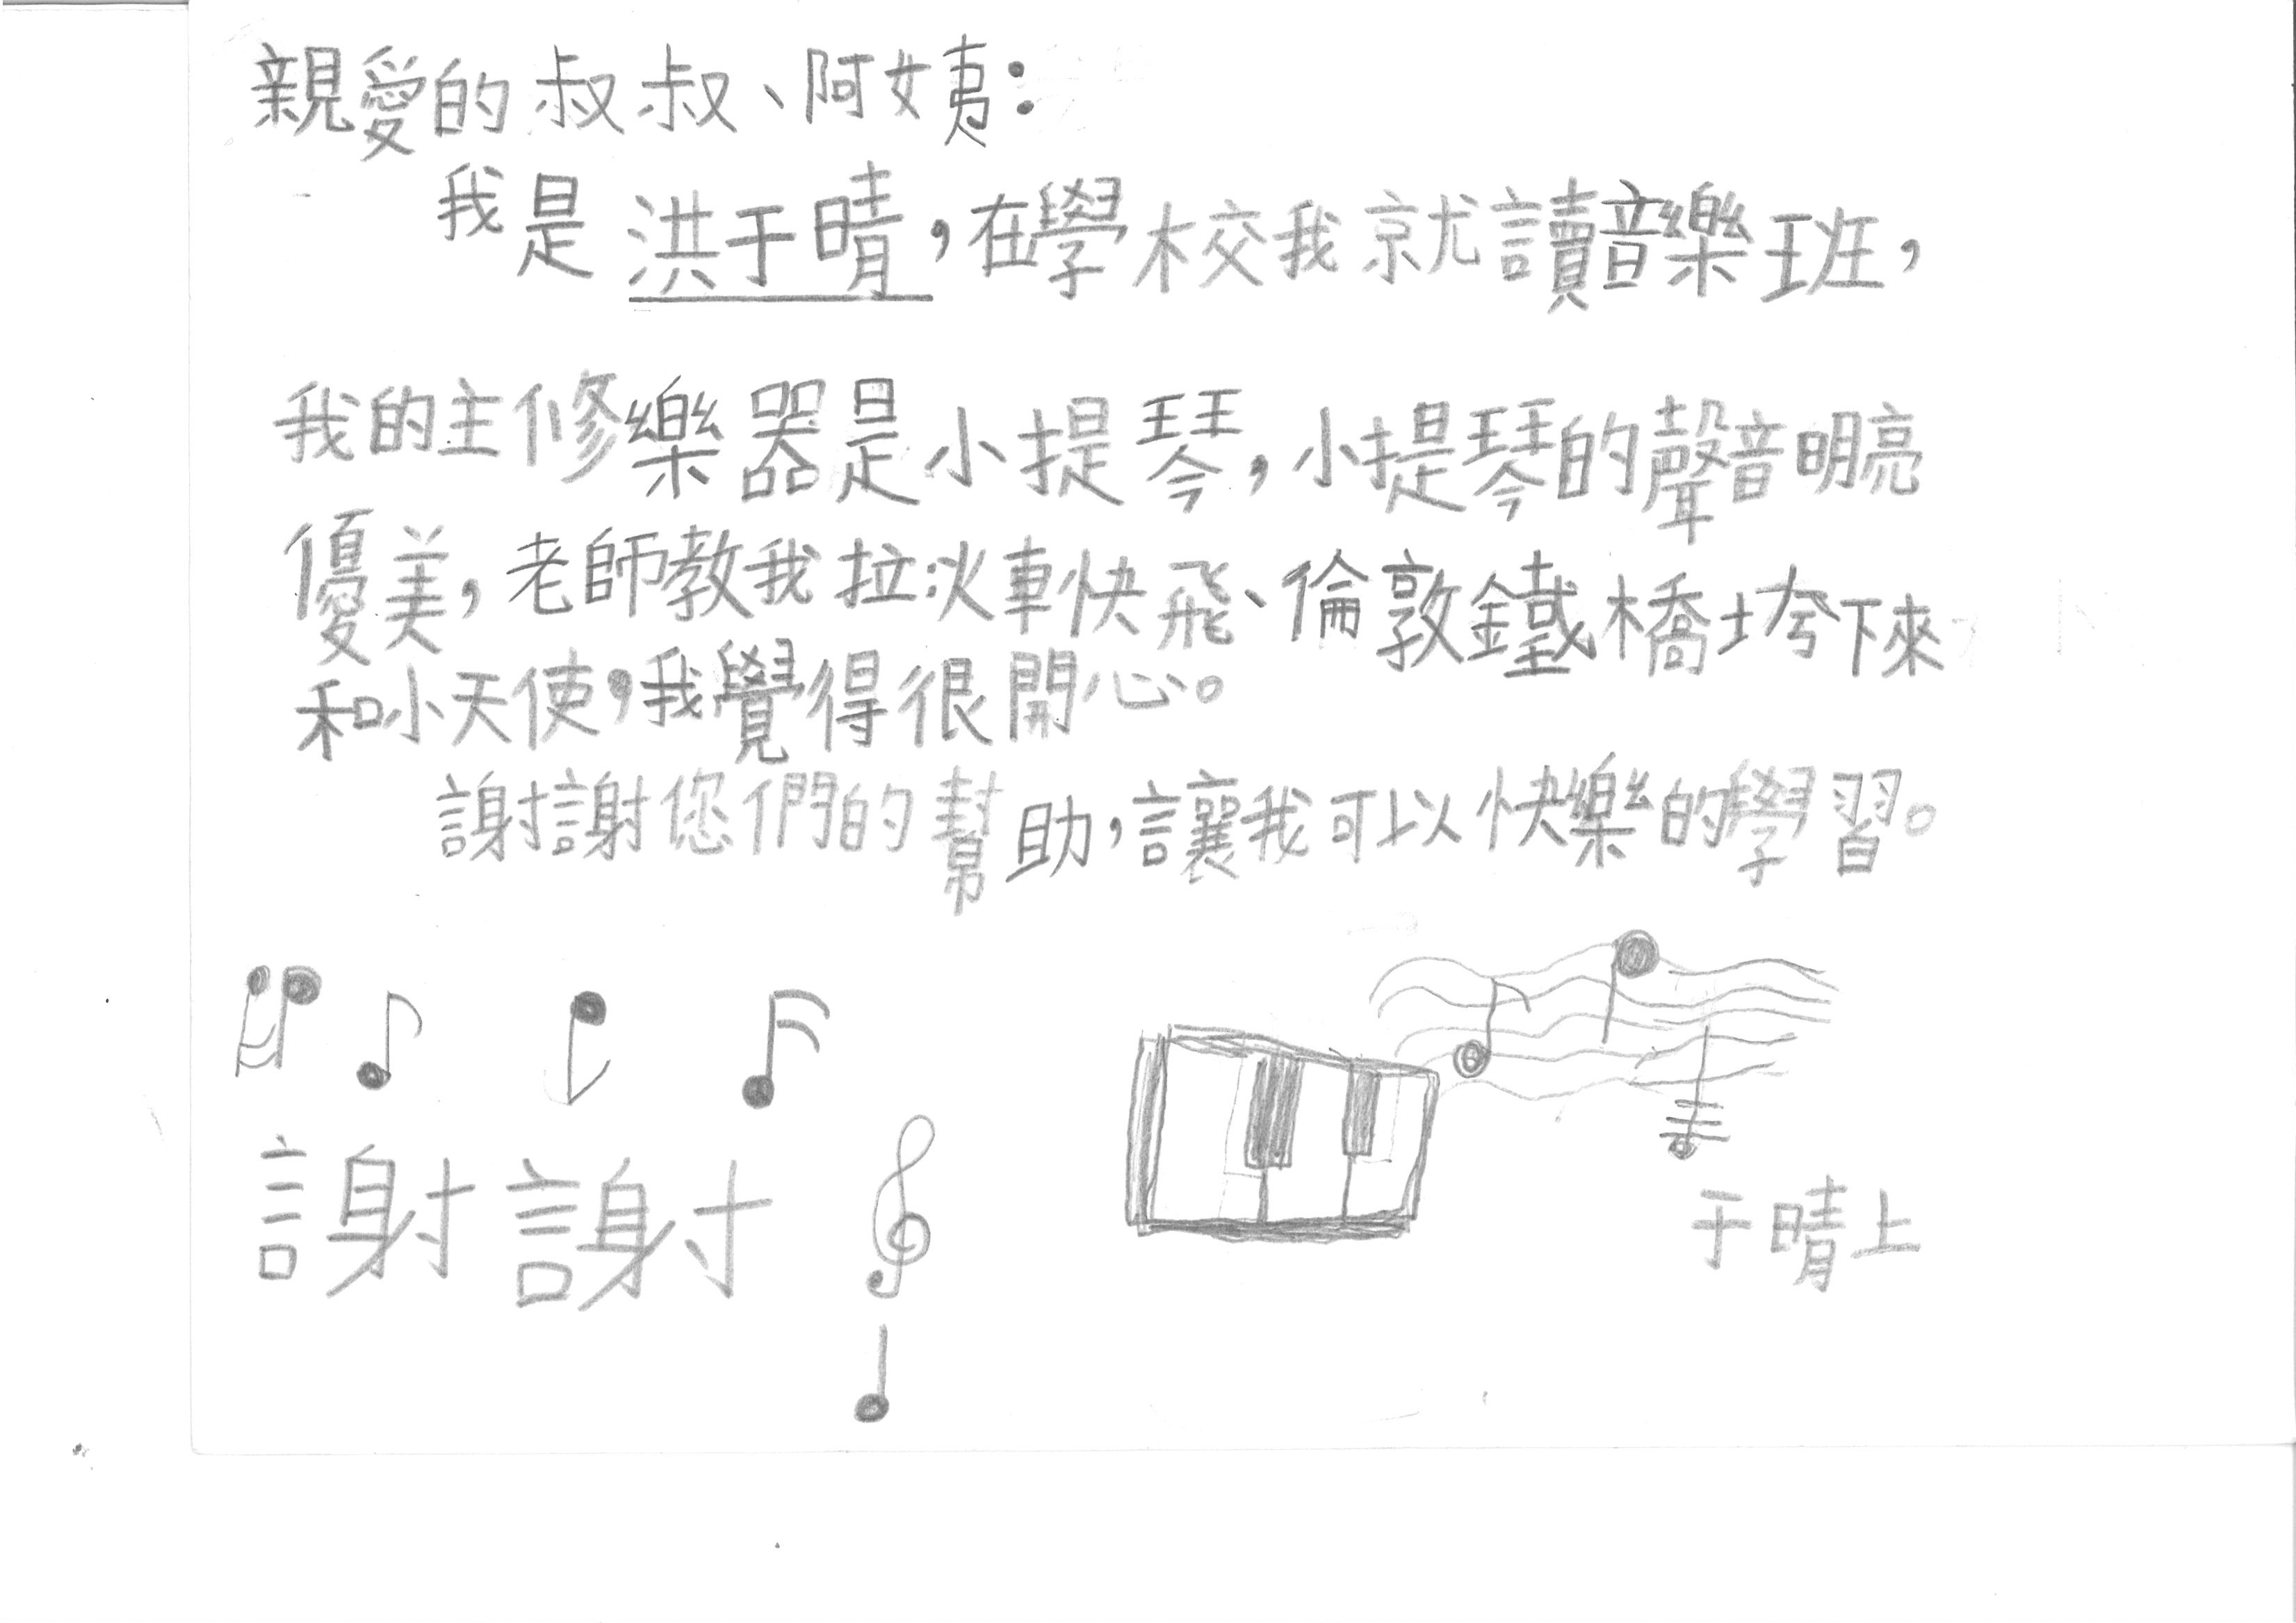 親愛的叔叔、阿姨：
我是洪于晴，在學校我就讀音樂班，
我的主修樂器是小提琴，小提琴的聲音明亮
優美，老師教我拉火車快飛、倫敦鐵橋垮下來
和小天使，我覺得很開心。
謝謝您們的幫助，讓我可以快樂的學習。
謝謝
于晴上